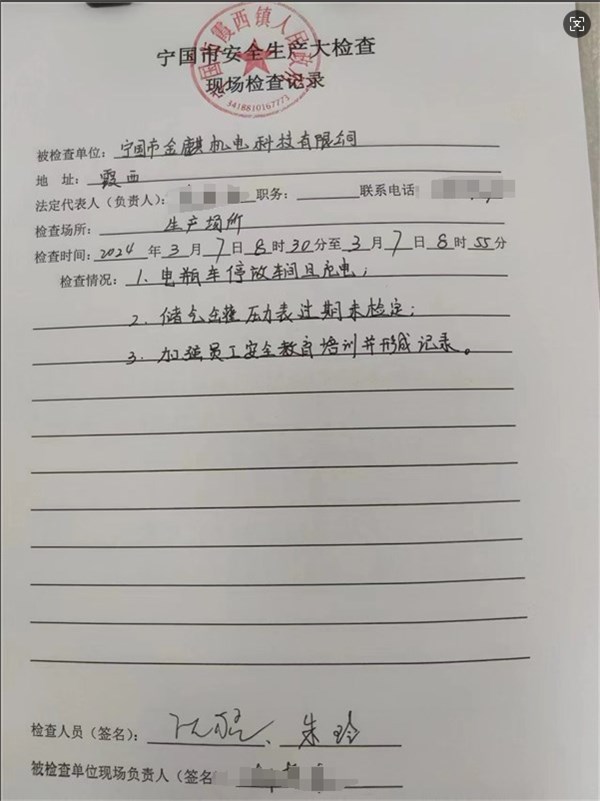 宁国市霞西镇人民政府
3418810167771
宁国市安全生产大检查
现场检查记录
被检查单位：宁国市金麒机电科技有限公司
地 址：霞西
法定代表人（负责人）： 职务： 联系电话
检查场所： 生产场所
检查时间：2024 年 3 月 7 日 8 时 30 分至 3 月 7 日 8 时 55 分
检查情况：1. 电瓶车停放车间且充电；
2. 储气罐压力表过期未检定；
3. 加强员工安全教育培训并形成记录。
检查人员（签名）： 朱玲
被检查单位现场负责人（签名